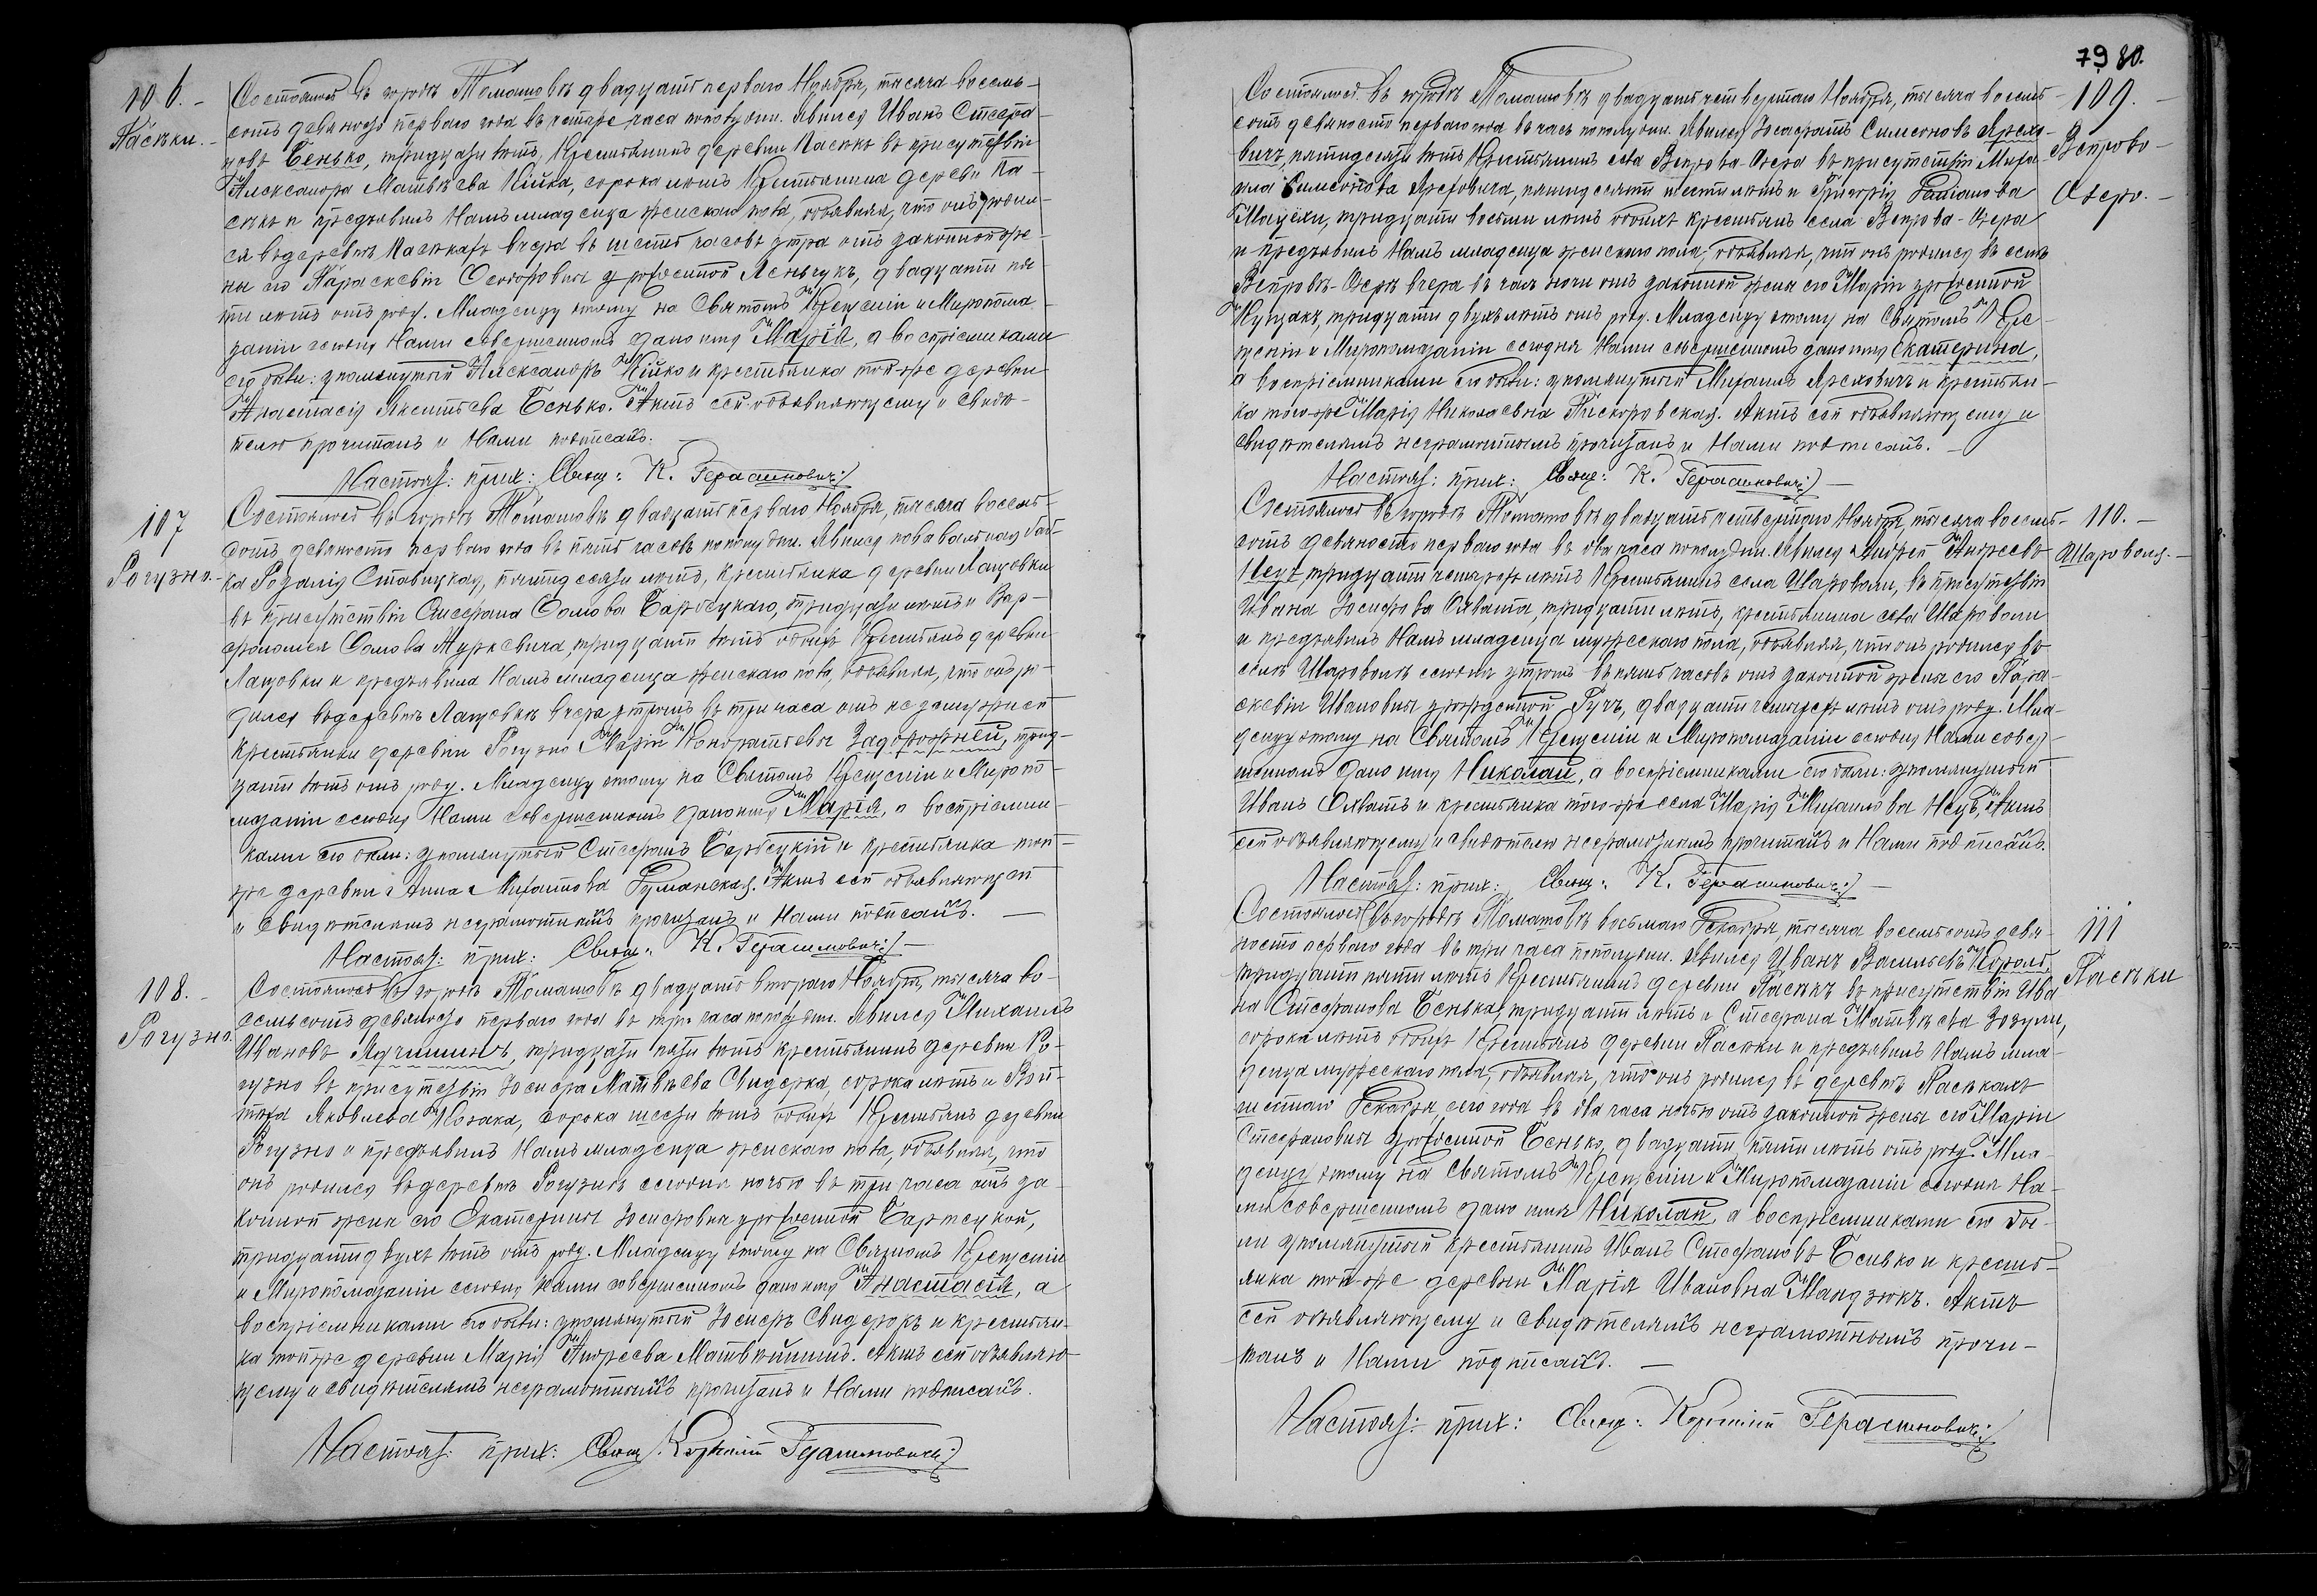 106.-
Пасѣки.-
Состоялось въ городѣ Томашовѣ двадцать перваго Ноября, тысяча восемь-
сотъ девяносто перваго года въ четыре часа пополудни. Явился Иванъ Стефа-
новъ Бенько, тридцати лѣтъ, Крестьянинъ деревни Пасѣкъ въ присутствіи
Александра Матвѣева Кійка, сорока лѣтъ Крестьянина деревни Па-
сѣкъ и предъявилъ Намъ младенца женскаго пола, объявляя, что онъ родил-
ся въ деревнѣ Пасѣкахъ вчера въ шесть часовъ утра отъ законной же-
ны его Параскевіи Ѳеодоровны урожденной Ленчукъ, двадцати пя-
ти лѣтъ отъ роду. Младенцу этому на Святомъ Крещеніи и Муропома-
заніи сегодня Нами совершенномъ дано имя Марія, а воспріемниками
его были: упомянутый Александръ Кійко и крестьянка той-же деревни
Анастасія Лаврентьева Бенько. Актъ сей объявляющему и свидѣ-
телю прочитанъ и Нами подписанъ.
Настоят: прих: Свящ: К. Герасимовичъ
107
Рогузно.-
Состоялось въ городѣ Томашовѣ двадцать перваго Ноября, тысяча восемь-
сотъ девяносто перваго года въ пять часовъ пополудни. Явилась повивальная баб-
ка Розалія Ставицкая, пятидесяти лѣтъ, крестьянка деревни Лащовки
въ присутствіи Стефана Сомова Барбецкаго, тридцати лѣтъ и Вар-
фоломея Сомова Мурмевича, тридцати лѣтъ обоихъ Крестьянъ деревни
Лащовки и предъявила Намъ младенца женскаго пола, объявляя, что онъ ро-
дился въ деревнѣ Лащовкѣ вчера утромъ въ три часа отъ незамужней
Крестьянки деревни Рогузно Маріи Кондратьевны Задорожней, трид-
цати лѣтъ отъ роду. Младенцу этому на Святомъ Крещеніи и Муропо-
мазаніи сегодня Нами совершенномъ дано имя Марія, а воспріемни-
ками его были: упомянутый Стефанъ Барбецкій и крестьянка той-
же деревни Анна Михайлова Гуманская. Актъ сей объявляющей
и свидѣтелямъ неграмотнымъ прочитанъ и Нами подписанъ.
Настоят: прих: Свящ: К. Герасимовичъ
108.-
Рогузно.
Состоялось въ городѣ Томашовѣ двадцать втораго Ноября, тысяча во-
семьсотъ девяносто перваго года въ три часа пополудни. Явился Михаилъ
Ивановъ Ядчишинъ, тридцати пяти лѣтъ крестьянинъ деревни Ро-
гузно въ присутствіи Іосифа Матвѣева Свидерка, сорока лѣтъ и Вой-
теха Яковлева Козака, сорока шести лѣтъ обоихъ Крестьянъ деревни
Рогузно и предъявилъ Намъ младенца женскаго пола, объявляя, что
онъ родился въ деревнѣ Рогузнѣ сегодня ночью въ три часа отъ за-
конной жены его Екатерины Іосифовны урожденной Бартецкой,
тридцати двухъ лѣтъ отъ роду. Младенцу этому на Святомъ Крещеніи
и Муропомазаніи сегодня Нами совершенномъ дано имя Анастасія, а
воспріемниками его были: упомянутый Іосифъ Свидерокъ и крестьян-
ка той-же деревни Марія Андреева Матвійшинъ. Актъ сей объявляю-
щему и свидѣтелямъ неграмотнымъ прочитанъ и Нами подписанъ.
Настоят: прих: Свящ: Корнилій Герасимовичъ
79 80.
109.-
Вепрово-
Озеро.-
Состоялось въ городѣ Томашовѣ двадцать четвертаго Ноября, тысяча восемь-
сотъ девяносто перваго года въ часъ пополудни. Явился Іосафатъ Симеоновъ Ярехо-
вичъ, пятидесяти лѣтъ Крестьянинъ села Вепрова-Озера въ присутствіи Миха-
ила Симеонова Яреховича, пятидесяти шести лѣтъ и Григорія Даміанова
Мацѣхи, тридцати восьми лѣтъ обоихъ крестьянъ села Вепрова-Озера
и предъявилъ Намъ младенца женскаго пола, объявляя, что онъ родился въ селѣ
Вепровѣ-Озерѣ вчера въ часъ ночи отъ законной жены его Маріи урожденной
Куцакъ, тридцати двухъ лѣтъ отъ роду. Младенцу этому на Святомъ Кре-
щеніи и Муропомазаніи сегодня Нами совершенномъ дано имя Екатерина,
а воспріемниками его были: упомянутый Михаилъ Яреховичъ и крестьян-
ка того-же Марія Николаевна Пискоровская. Актъ сей объявляющему и
свидѣтелямъ неграмотнымъ прочитанъ и Нами подписанъ.
Настоят: прих: Свящ: К. Герасимовичъ
110.-
Шароволя.-
Состоялось въ городѣ Томашовѣ двадцать четвертаго Ноября, тысяча восемь-
сотъ девяносто перваго года въ два часа пополудни. Явился Андрей Андреевъ
Неуъ, тридцати четырехъ лѣтъ Крестьянинъ села Шароволи, въ присутствіи
Ивана Іосифова Охвата, тридцати лѣтъ, крестьянина села Шароволи
и предъявилъ Намъ младенца мужескаго пола, объявляя, что онъ родился въ
селѣ Шароволѣ сегодня утромъ въ пять часовъ отъ законной жены его Пара-
скевіи Ивановны урожденной Гучъ, двадцати четырехъ лѣтъ отъ роду. Мла-
денцу этому на Святомъ Крещеніи и Муропомазаніи сегодня Нами совер-
шенномъ дано имя Николай, а воспріемниками его были: упомянутый
Иванъ Охватъ и крестьянка того-же села Марія Михаилова Неуъ. Актъ
сей объявляющему и свидѣтелю неграмотнымъ прочитанъ и Нами подписанъ.
Настоят: прих: Свящ: К. Герасимовичъ
111
Пасѣки
Состоялось въ городѣ Томашовѣ восьмаго Декабря, тысяча восемьсотъ девя-
носто перваго года въ три часа пополудни. Явился Иванъ Васильевъ Король,
тридцати пяти лѣтъ Крестьянинъ деревни Пасѣкъ въ присутствіи Ива-
на Стефанова Бенька, тридцати лѣтъ и Стефана Матвѣева Зозули,
сорока лѣтъ обоихъ Крестьянъ деревни Пасѣки и предъявилъ Намъ мла-
денца мужескаго пола, объявляя, что онъ родился въ деревнѣ Пасѣкахъ
шестаго Декабря сего года въ два часа ночью отъ законной жены его Маріи
Стефановны урожденной Бенько, двадцати пяти лѣтъ отъ роду. Мла-
денцу этому на Святомъ Крещеніи и Муропомазаніи сегодня На-
ми совершенномъ дано имя Николай, а воспріемниками его бы-
ли упомянутый крестьянинъ Иванъ Стефановъ Бенько и кресть-
янка той-же деревни Марія Ивановна Мандзюкъ. Актъ
сей объявляющему и свидѣтелямъ неграмотнымъ прочи-
танъ и Нами подписанъ.
Настоят: прих: Свящ: Корнилій Герасимовичъ